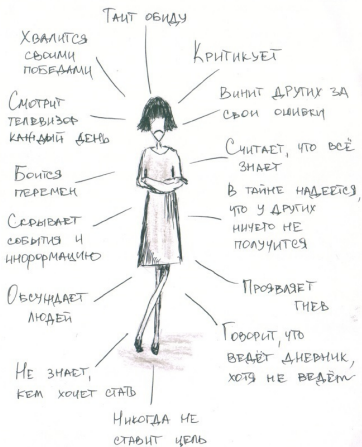 Таит обиду
Хвалится
своими
победами
Критикует
Смотрит
телевизор
каждый день
Винит других за
свои ошибки
Считает, что всё
знает
Боится
перемен
В тайне надеется,
что у других
ничего не
получится
Скрывает
события и
информацию
Проявляет
гнев
Обсуждает
людей
Говорит, что
ведёт дневник,
хотя не ведёт
Не знает,
кем хочет стать
Никогда не
ставит цель